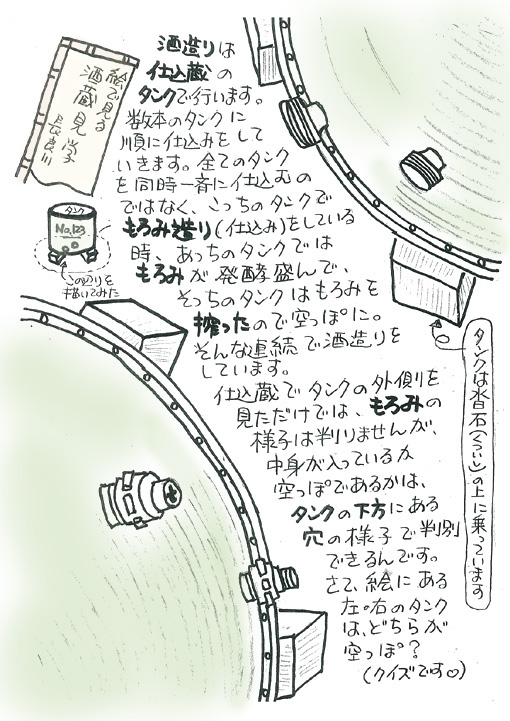 絵で見る
酒蔵見学
長良川
タンク
No.123
この辺りを
描いてみた
酒造りは
仕込蔵の
タンクで行います。
数本のタンクに
順に仕込みをして
いきます。全てのタンク
を同時一斉に仕込むの
ではなく、こっちのタンクで
もろみ造り(仕込み)をしている
時、あっちのタンクでは
もろみが発酵盛んで、
そっちのタンクはもろみを
搾ったので空っぽに。
そんな連続で酒造りを
しています。
仕込蔵でタンクの外側を
見ただけでは、もろみの
様子は判りませんが、
中身が入っているか
空っぽであるかは、
タンクの下方にある
穴の様子で判別
できるんです。
さて、絵にある
左・右のタンク
は、どちらが
空っぽ?
(クイズです♡)
タンクは沓石(くついし)の上に乗っています